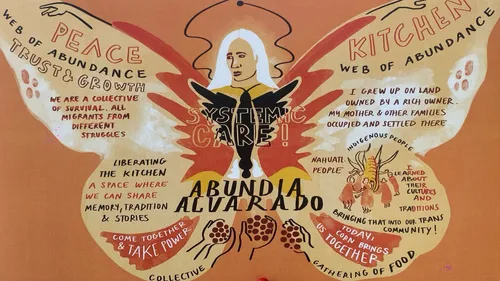 PEACE
WEB OF ABUNDANCE
TRUST & GROWTH
WE ARE A COLLECTIVE
OF SURVIVAL. ALL
MIGRANTS FROM
DIFFERENT
STRUGGLES
LIBERATING
THE KITCHEN
A SPACE WHERE
WE CAN SHARE
MEMORY, TRADITION
& STORIES
COME TOGETHER
& TAKE POWER
COLLECTIVE
SYSTEMIC
CARE!
ABUNDIA
ALVARADO
KITCHEN
WEB OF ABUNDANCE
I GREW UP ON LAND
OWNED BY A RICH OWNER.
MY MOTHER & OTHER FAMILIES
OCCUPIED AND SETTLED THERE
INDIGENOUS PEOPLE
NAHUATL
PEOPLE
I
LEARNED
ABOUT
THEIR
CULTURES
AND
TRADITIONS
BRINGING THAT INTO OUR TRANS
COMMUNITY!
TODAY,
CORN BRINGS
US TOGETHER
GATHERING OF FOOD